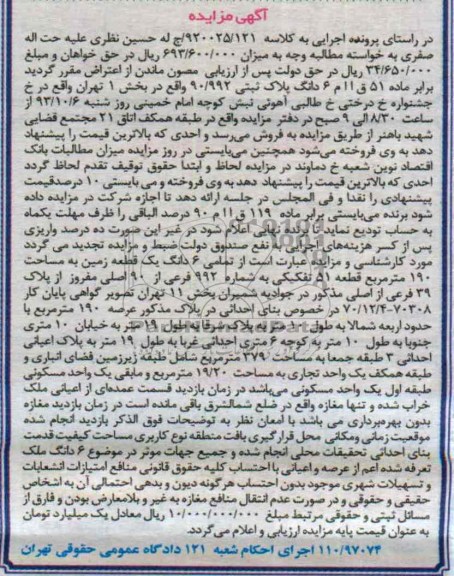 آگهی مزایده
در راستای پرونده اجرایی به کلاسه ۹۲۰۰۲۵/۱۲۱/ج له حسین نظری علیه حت اله
صفری به خواسته مطالبه وجه به میزان ۶۹۳/۶۰۰/۰۰۰ ریال در حق خواهان و مبلغ
۳۴/۶۵۰/۰۰۰ ریال در حق دولت پس از ارزیابی مصون ماندن از اعتراض مقرر گردید
برابر ماده ۵۱ ق اا م ۶ دانگ پلاک ثبتی ۹۰/۹۹۲ واقع در بخش ۱ تهران واقع در خ
جشنواره خ درختی خ طالبی آهوئی نبش کوچه امام خمینی روز شنبه ۹۳/۱۰/۶ از
ساعت ۸/۳۰ الی ۹ صبح در دفتر مزایده واقع در طبقه همکف اتاق ۲۱ مجتمع قضایی
شهید باهنر از طریق مزایده به فروش می‌رسد و احدی که بالاترین قیمت را پیشنهاد
دهد به وی فروخته می‌شود همچنین می‌بایستی در روز مزایده میزان مطالبات بانک
اقتصاد نوین شعبه خ دماوند در مزایده لحاظ و ابتدا حقوق توقیف تقدم لحاظ گردد
احدی که بالاترین قیمت را پیشنهاد دهد به وی فروخته و می بایستی ۱۰ درصدقیمت
پیشنهادی را نقدا و فی المجلس در جلسه ارائه دهد تا اجازه شرکت در مزایده داده
شود برنده می‌بایستی برابر ماده ۱۱۹ ق اا م ۹۰ درصد الباقی را ظرف مهلت یکماه
به حساب تودیع نماید تا برنده نهایی اعلام شود در غیر این صورت ده درصد واریزی
پس از کسر هزینه‌های اجرایی به نفع صندوق دولت ضبط و مزایده تجدید می گردد
مورد کارشناسی و مزایده عبارت است از تمامی ۶ دانگ یک قطعه زمین به مساحت
۱۹۰ مترمربع قطعه ۵۱ تفکیکی به شماره ۹۹۲ فرعی از ۹۰ اصلی مفروز از پلاک
۳۹ فرعی از اصلی مذکور در جوادیه شمیران بخش ۱۱ تهران تصویر گواهی پایان کار
۷۰۳۰۸-۷۰/۱۲/۴ در خصوص بنای احداثی در پلاک مذکور عرصه ۱۹۰ مترمربع با
حدود اربعه شمالا به طول ۱۰ متر به پلاک شرقا به طول ۱۹ متر به خیابان ۱۰ متری
جنوبا به طول ۱۰ متر به کوچه ۶ متری احداثی غربا به طول ۱۹ متر به پلاک اعیانی
احداثی ۳ طبقه جمعا به مساحت ۳۷۹ مترمربع شامل طبقه زیرزمین فضای انباری و
طبقه همکف یک واحد تجاری به مساحت ۱۹/۲۰ مترمربع و مابقی یک واحد مسکونی
طبقه اول یک واحد مسکونی می‌باشد در زمان بازدید قسمت عمده‌ای از اعیانی ملک
خراب شده و تنها مغازه واقع در ضلع شمالشرق باقی مانده است در زمان بازدید مغازه
بدون بهره‌برداری می باشد با امعان نظر به توضیحات فوق الذکر بازدید انجام شده
موقعیت زمانی ومکانی محل قرارگیری بافت منطقه نوع کاربری مساحت کیفیت قدمت
بنای احداثی تحقیقات محلی انجام شده و جمیع جهات موثر در موضوع ۶ دانگ ملک
تعرفه شده اعم از عرصه و اعیانی با احتساب کلیه حقوق قانونی منافع امتیازات انشعابات
و تسهیلات شهری موجود بدون احتساب هرگونه دیون و بدهی احتمالی آن به اشخاص
حقیقی و حقوقی و در صورت عدم انتقال منافع مغازه به غیر و بلامعارض بودن و فارق از
مسائل ثبتی و حقوقی مرتبط مبلغ ۱۰/۰۰۰/۰۰۰/۰۰۰ ریال معادل یک میلیارد تومان
به عنوان قیمت پایه مزایده ارزیابی و اعلام می‌گردد.
۱۱۰/۹۷۰۷۴ اجرای احکام شعبه ۱۲۱ دادگاه عمومی حقوقی تهران